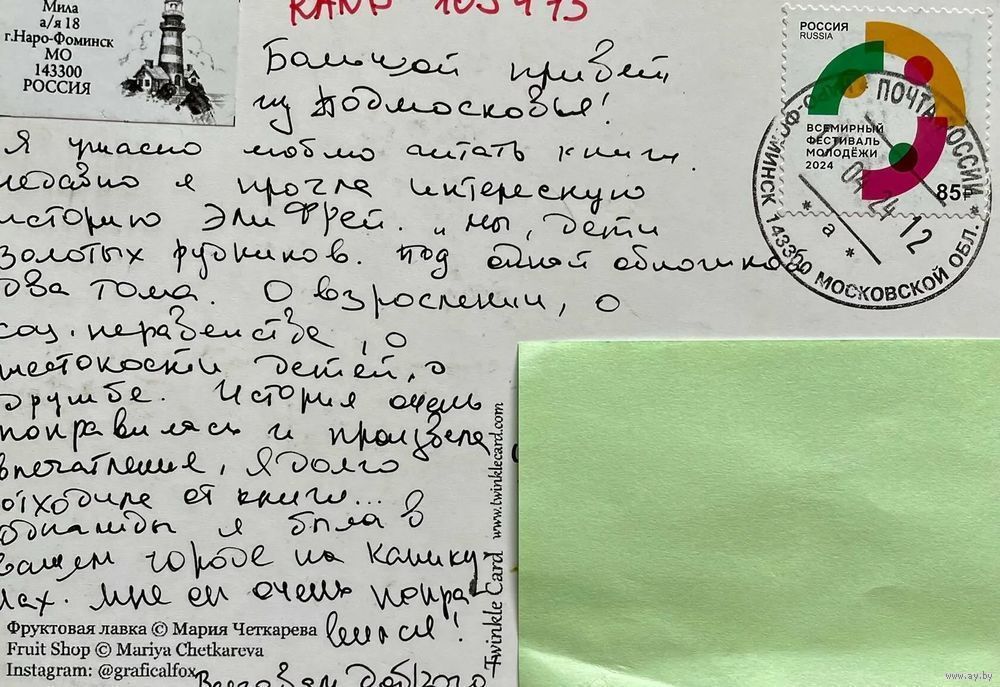 Мила
а/я 18
г.Наро-Фоминск
МО
143300
РОССИЯ
Большой привет
из Подмосковья!
Я ужасно люблю читать книги
недавно я прочла интересную
историю Эли Фрей. „Мы, дети
золотых рудников. Под одной обложкой
два тома. О взрослении, о
соц. неравенстве, о
жестокости детей, о
дружбе. История очень
понравилась и произвела
впечатление, я долго
отходила от книги...
однажды я была в
вашем городе на канику-
лах. Мне он очень понра-
вился!
Всего Вам доброго
РОССИЯ
RUSSIA
ВСЕМИРНЫЙ
ФЕСТИВАЛЬ
МОЛОДЁЖИ
2024
85₽
ПОЧТА РОССИИ
143300 МОСКОВСКОЙ ОБЛ.
04 24 12
* а *
Фруктовая лавка © Мария Четкарева
Fruit Shop © Mariya Chetkareva
Instagram: @graficalfox
Twinkle Card www.twinklecard.com
www.ay.by